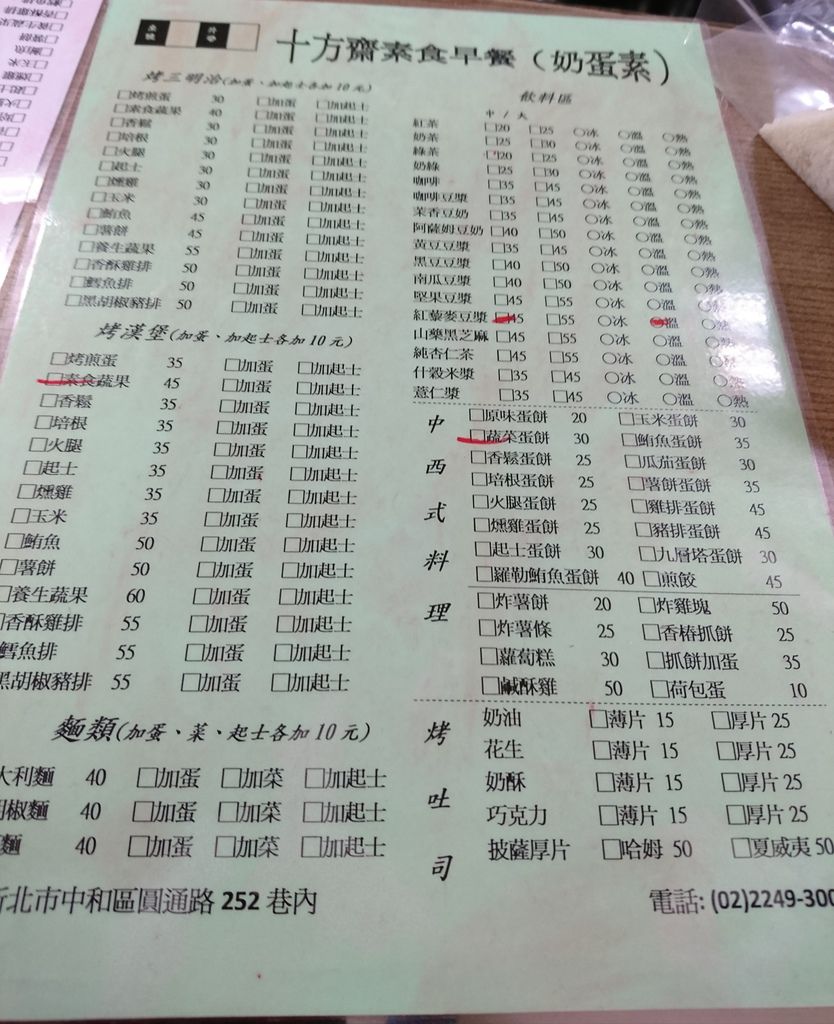 十方齋素食早餐（奶蛋素）
烤三明治(加蛋、加起士各加 10 元)
□烤煎蛋 30 □加蛋 □加起士
□素食蔬果 40 □加蛋 □加起士
□香鬆 30 □加蛋 □加起士
□培根 30 □加蛋 □加起士
□火腿 30 □加蛋 □加起士
□起士 30 □加蛋 □加起士
□燻雞 30 □加蛋 □加起士
□玉米 30 □加蛋 □加起士
□鮪魚 45 □加蛋 □加起士
□薯餅 45 □加蛋 □加起士
□養生蔬果 55 □加蛋 □加起士
□香酥雞排 50 □加蛋 □加起士
□鱈魚排 50 □加蛋 □加起士
□黑胡椒豬排 50 □加蛋 □加起士
烤漢堡(加蛋、加起士各加 10 元)
□烤煎蛋 35 □加蛋 □加起士
□素食蔬果 45 □加蛋 □加起士
□香鬆 35 □加蛋 □加起士
□培根 35 □加蛋 □加起士
□火腿 35 □加蛋 □加起士
□起士 35 □加蛋 □加起士
□燻雞 35 □加蛋 □加起士
□玉米 35 □加蛋 □加起士
□鮪魚 50 □加蛋 □加起士
□薯餅 50 □加蛋 □加起士
□養生蔬果 60 □加蛋 □加起士
□香酥雞排 55 □加蛋 □加起士
鱈魚排 55 □加蛋 □加起士
黑胡椒豬排 55 □加蛋 □加起士
麵類(加蛋、菜、起士各加 10 元)
大利麵 40 □加蛋 □加菜 □加起士
胡椒麵 40 □加蛋 □加菜 □加起士
麵 40 □加蛋 □加菜 □加起士
飲料區
中 / 大
紅茶 □20 □25 ○冰 ○溫 ○熱
奶茶 □25 □30 ○冰 ○溫 ○熱
綠茶 □20 □25 ○冰 ○溫 ○熱
奶綠 □25 □30 ○冰 ○溫 ○熱
咖啡 □35 □45 ○冰 ○溫 ○熱
咖啡豆漿 □35 □45 ○冰 ○溫 ○熱
茉香豆奶 □35 □45 ○冰 ○溫 ○熱
阿薩姆豆奶 □40 □50 ○冰 ○溫 ○熱
黃豆豆漿 □35 □45 ○冰 ○溫 ○熱
黑豆豆漿 □40 □50 ○冰 ○溫 ○熱
南瓜豆漿 □40 □50 ○冰 ○溫 ○熱
堅果豆漿 □45 □55 ○冰 ○溫 ○熱
紅藜麥豆漿 □45 □55 ○冰 ○溫 ○熱
山藥黑芝麻 □45 □55 ○冰 ○溫 ○熱
純杏仁茶 □45 □55 ○冰 ○溫 ○熱
什穀米漿 □35 □45 ○冰 ○溫 ○熱
薏仁漿 □35 □45 ○冰 ○溫 ○熱
中西式料理
□原味蛋餅 20 □玉米蛋餅 30
□蔬菜蛋餅 30 □鮪魚蛋餅 35
□香鬆蛋餅 25 □瓜茄蛋餅 30
□培根蛋餅 25 □薯餅蛋餅 35
□火腿蛋餅 25 □雞排蛋餅 45
□燻雞蛋餅 25 □豬排蛋餅 45
□起士蛋餅 30 □九層塔蛋餅 30
□羅勒鮪魚蛋餅 40 □煎餃 45
□炸薯餅 20 □炸雞塊 50
□炸薯條 25 □香椿抓餅 25
□蘿蔔糕 30 □抓餅加蛋 35
□鹹酥雞 50 □荷包蛋 10
烤吐司
奶油 □薄片 15 □厚片 25
花生 □薄片 15 □厚片 25
奶酥 □薄片 15 □厚片 25
巧克力 □薄片 15 □厚片 25
披薩厚片 □哈姆 50 □夏威夷 50
新北市中和區圓通路 252 巷內
電話: (02)2249-300